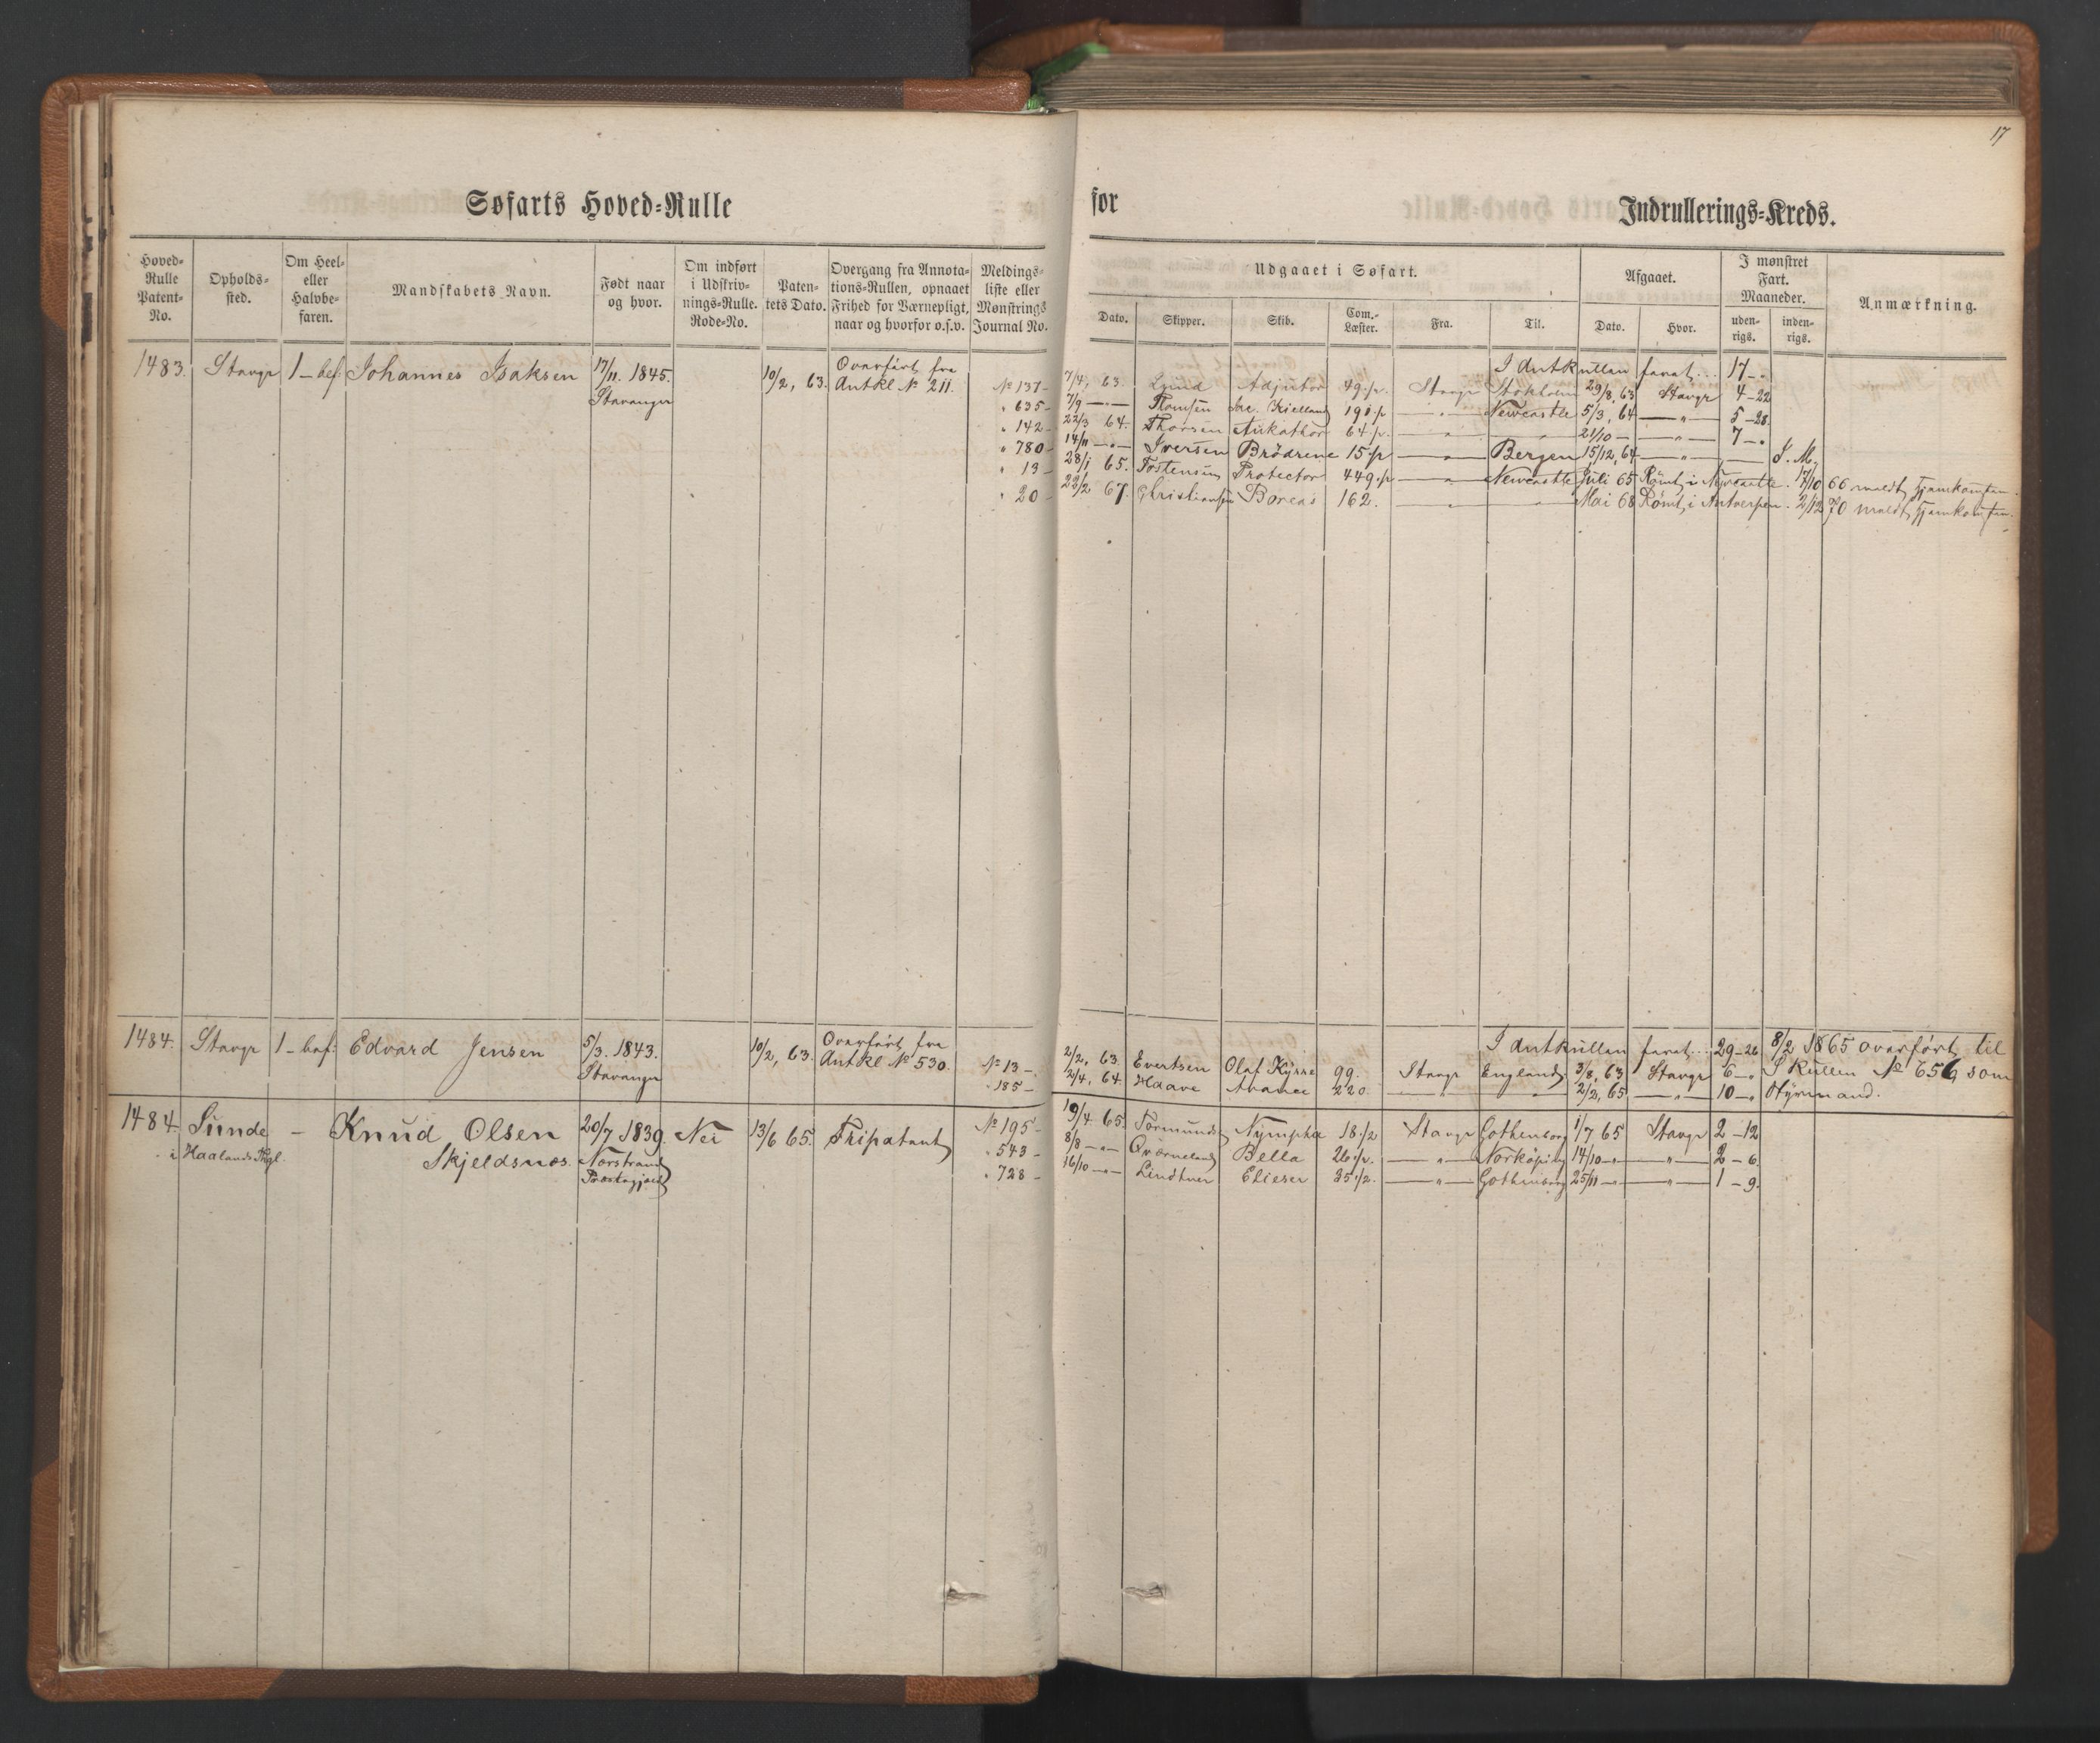 17
Søfarts Hoved=Rulle
for
Indrullerings=Kreds.
Hoved=Rulle Patent=No.
Opholds=sted.
Om Heel= eller Halvbe=faren.
Mandskabets Navn.
Født naar og hvor.
Om indført i Udskriv=nings=Rulle. Rode=No.
Paten=tets Dato.
Overgang fra Annota=tions=Rullen, opnaaet Frihed for Værnepligt, naar og hvorfor o.s.v.
Meldings=liste eller Mønstrings Journal No.
Udgaaet i Søfart.
Dato.
Skipper.
Skib.
Com.=Læster.
Fra.
Til.
Afgaaet.
Dato.
Hvor.
I mønstret Fart. Maaneder.
uden=rigs.
inden=rigs.
Anmærkning.
1483. Stavgr 1-bef. Johannes Isaksen 17/11. 1845. 10/2, 63. Overført fra
Stavanger Antkl № 211.
I Antrullen faret... 17-"
№ 137- 7/4, 63. Lund Adjutor 49 1/2. Stavgr Stokholm 29/8, 63 Stavgr 4-22
" 635- 7/9 -"- Thomsen Jac. Kielland 191 1/2 -"- Newcastle 5/3, 64 -"- 5-28.
" 142- 22/3 64. Thorsen 64 1/2. -"- -"- 21/10 - -"- 7-"
" 780- 14/11 -"- Iversen Brødrene 15 1/2 -"- Bergen 15/12, 64 -"- - S. M.
" 13- 28/1 65. Tostensen Protector 449 1/2 -"- Newcastle Juli 65 Rømt i Newcastle. 17/10 66 meldt Hjemkomsten.
" 20- 22/2 67. Christiansen Boreas 162. -"- -"- Mai 68 Rømt i Antverpen. 2/12 70 meldt Hjemkomsten.
1484. Stavgr 1-bef. Edvard Jensen 5/3. 1843. 10/2, 63. Overført fra
Stavanger Antkl № 530.
I Antrullen faret... 29-26 8/2 1865 overført til
№ 13-. 2/2, 63. Evertsen Olaf Kyrre 99. Stavgr England 3/8, 63 Stavgr 6-" S Rullen № 656 som
" 185- 2/4, 64. Haave Avance 220. -"- -"- 2/2, 65 -"- 10-" Styrmand.
1484. Sunde - Knud Olsen 20/7 1839. Nei 13/6 65. Fripatent
i Haalands Thgl. Skjeldsnøs. Nerstrand
Præstegjæld
№ 195- 19/4 65. Tormunds Nympha 18 1/2 Stavgr Gothenborg 1/7 65 Stavgr 2-12
" 543- 8/8 -"- Qvørneland Bella 26 1/2. -"- Norkøping 14/10 -"- -"- 2-6.
" 728- 16/10 -"- Lindtner Elieser 35 1/2. -"- Gothenborg 25/11 -"- -"- 1-9.